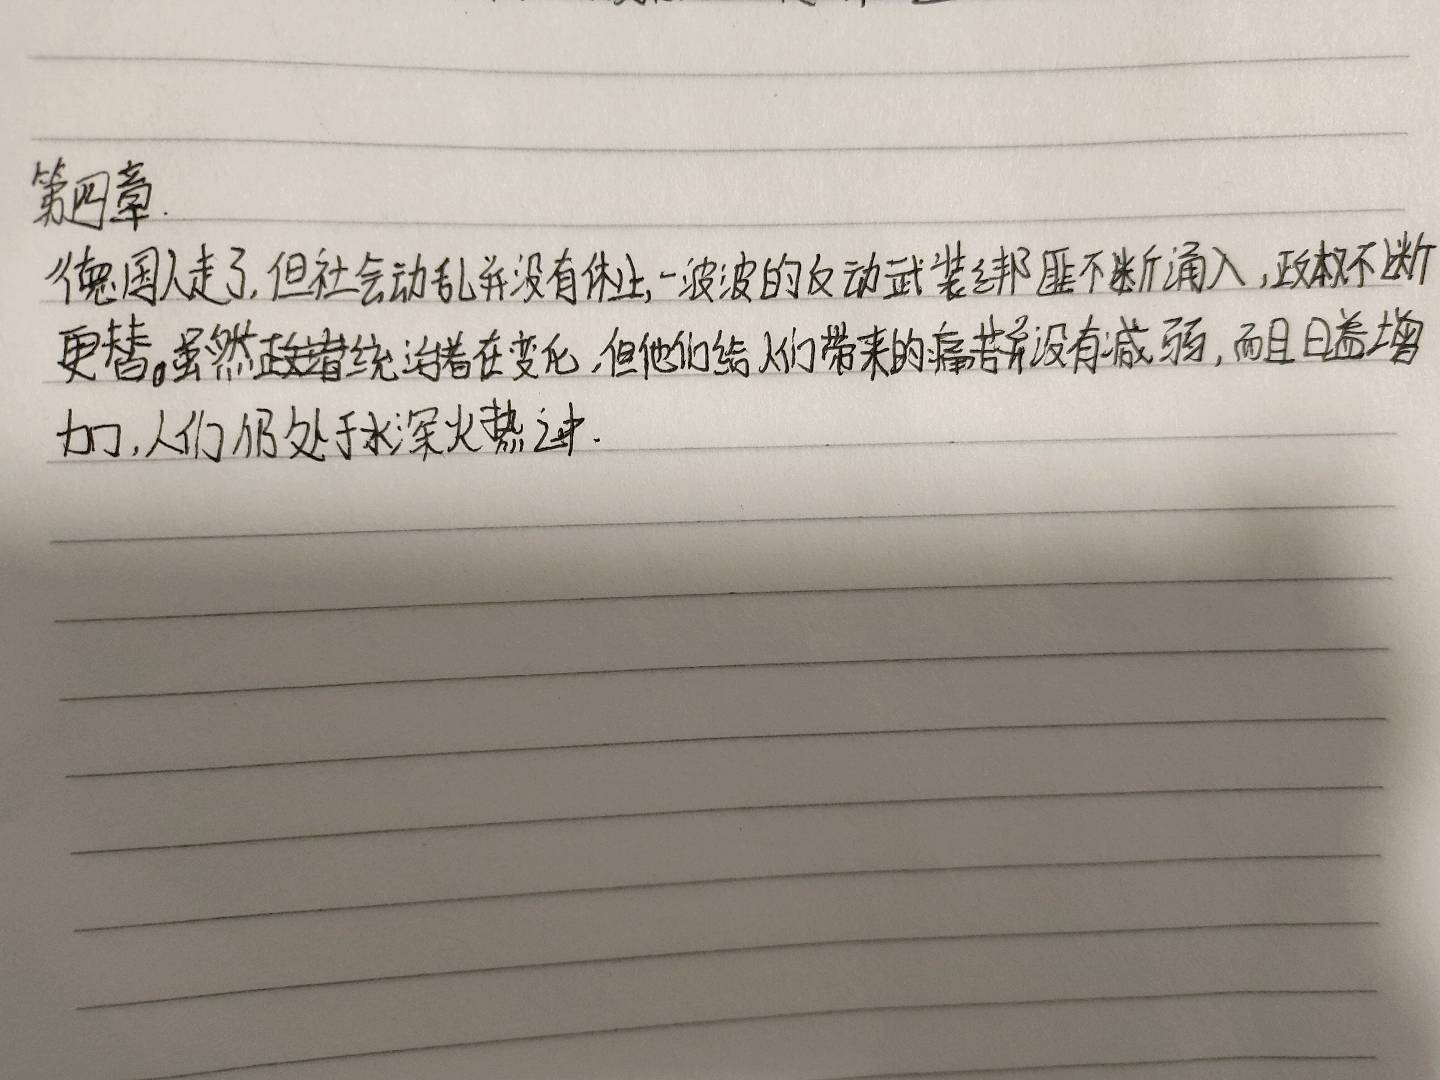 第四章.
德国人走了,但社会动乱并没有休止,一波波的反动武装绑匪不断涌入,政权不断
更替。虽然政统治者在变化,但他们给人们带来的痛苦并没有减弱,而且日益增
加,人们仍处于水深火热之中.